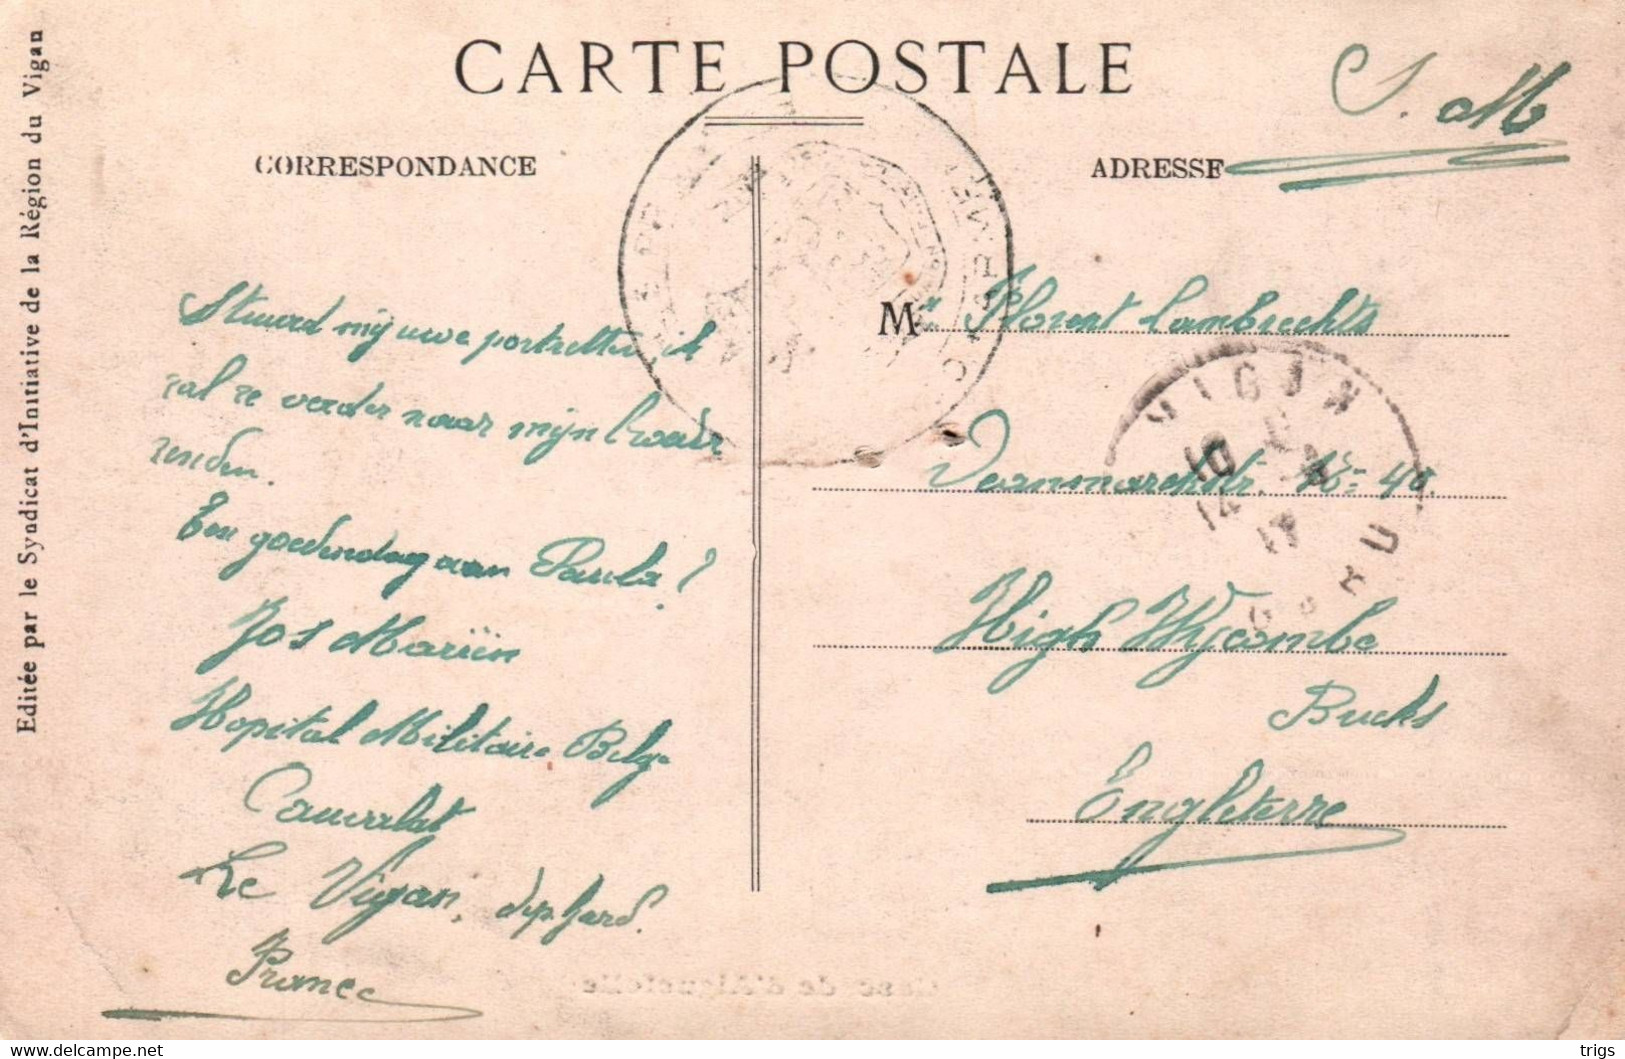 Editée par le Syndicat d'Initiative de la Région du Vigan
CARTE POSTALE
S. M
CORRESPONDANCE
ADRESSE
Stuurd mij uwe portretten ik
zal ze verder naar mijn broeder
zenden.
Een goedendag aan Paula?
Jos Mariën
Hopital Militaire Belge
Cauvalat
Le Vigan, dep. Gard.
France
Mr Florent Lambrechts
Deanmarckstr. No= 40.
High Wycombe
Bucks
Engleterre
VIGAN
10
14
17
GARD
de d'Aiguefeuille
www.delcampe.net
trigs